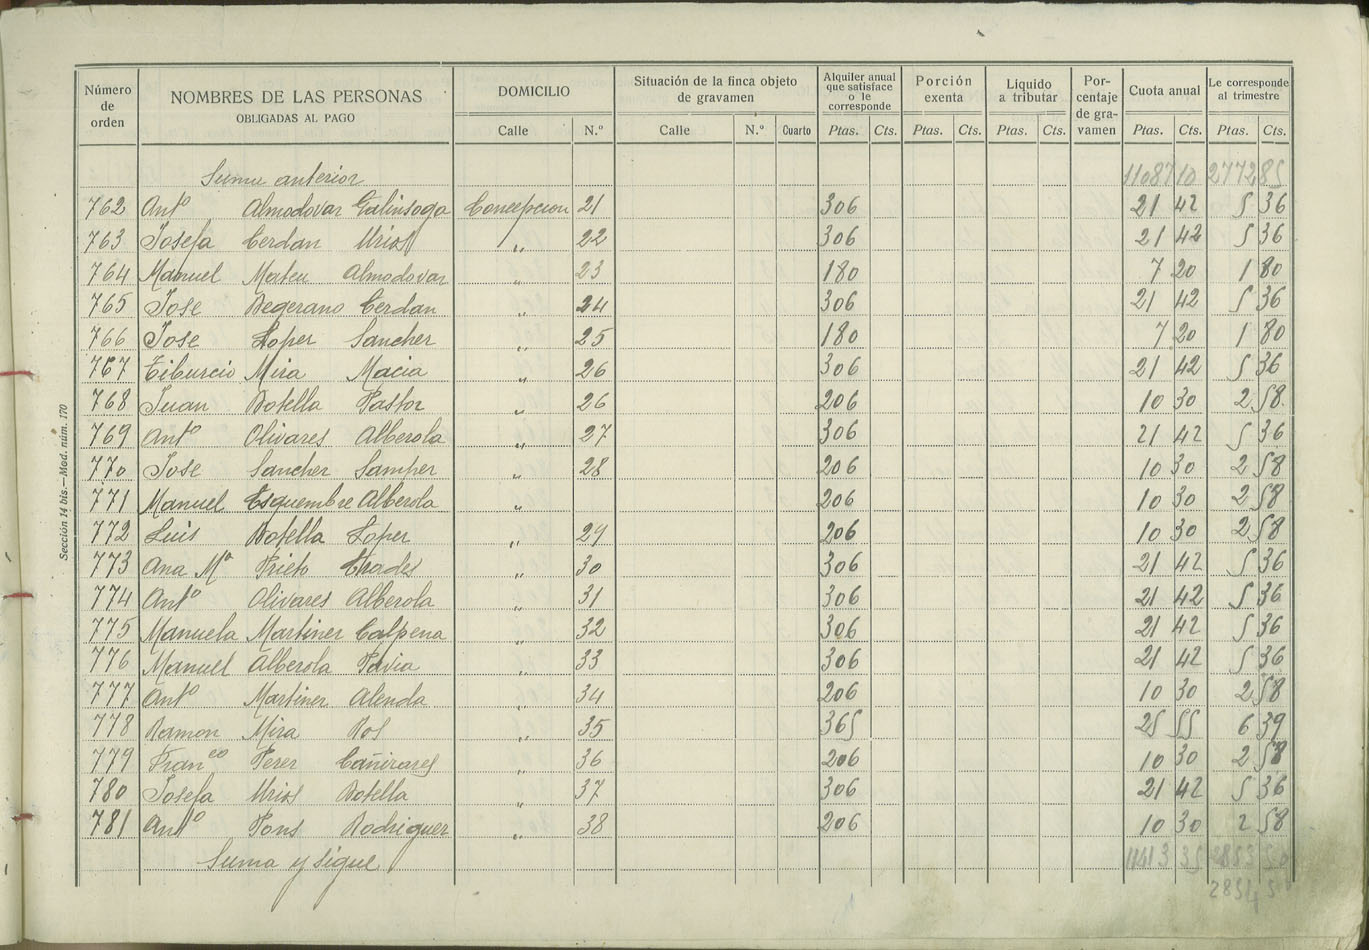 Número de orden NOMBRES DE LAS PERSONAS OBLIGADAS AL PAGO DOMICILIO Situación de la finca objeto de gravamen Alquiler anual que satisface o le corresponde Porción exenta Liquido a tributar Por-centaje de gra-vamen Cuota anual Le corresponde al trimestre
Calle N.º Calle N.º Cuarto Ptas. Cts. Ptas. Cts. Ptas. Cts. Ptas. Cts. Ptas. Cts.
Suma anterior 11087 10 2772 85
762 Antº Almodovar Galinsoga Concepcion 21 306 21 42 5 36
763 Josefa Cerdan Urios " 22 306 21 42 5 36
764 Manuel Mateu Almodovar " 23 180 7 20 1 80
765 Jose Begerano Cerdan " 24 306 21 42 5 36
766 Jose Loper Sancher " 25 180 7 20 1 80
767 Tiburcio Mira Macia " 26 306 21 42 5 36
768 Juan Botella Pastor " 26 206 10 30 2 58
769 Antº Olivares Alberola " 27 306 21 42 5 36
770 Jose Sancher Samper " 28 206 10 30 2 58
771 Manuel Esquembre Alberola " 206 10 30 2 58
772 Luis Botella Loper " 29 206 10 30 2 58
773 Ana Mª Prieto " 30 306 21 42 5 36
774 Antº Olivares Alberola " 31 306 21 42 5 36
775 Manuela Martiner Calpena " 32 306 21 42 5 36
776 Manuel Alberola Pavia " 33 306 21 42 5 36
777 Antº Martiner Alenda " 34 206 10 30 2 58
778 Ramon Mira Ros " 35 365 25 55 6 39
779 Franco Perer Cañirares " 36 206 10 30 2 58
780 Josefa Urios Botella " 37 306 21 42 5 36
781 Antº Pons Rodriguer " 38 206 10 30 2 58
Suma y sigue 11413 35 2853
Sección 14 bis.—Mod. núm. 170